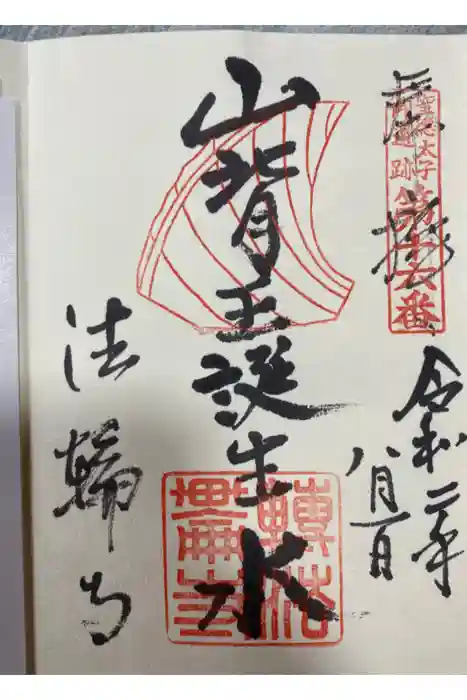 奉拝
聖徳太子
御遺跡
第十六番
令和二年
八月一日
山背王誕生水
法輪寺